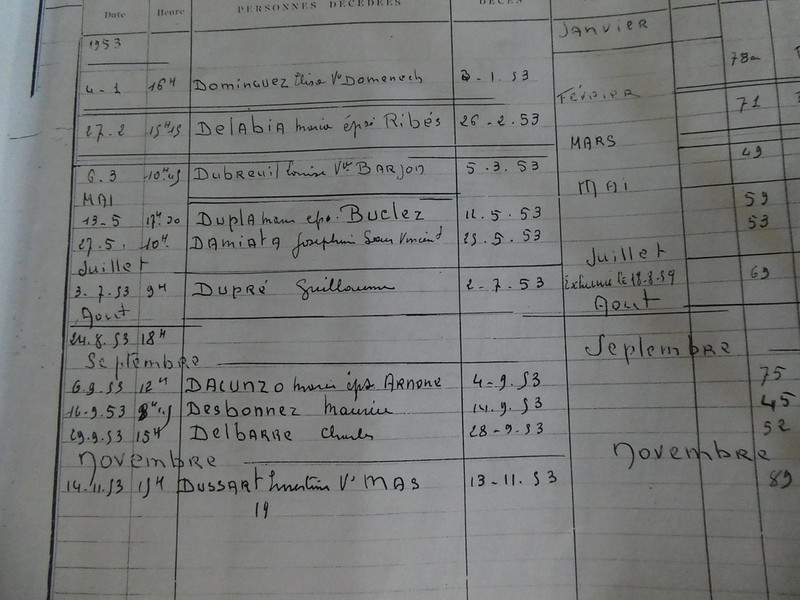 Date Heure PERSONNES DÉCÉDÉES DÉCÈS
1953 JANVIER
4-1 16H DominGuez Elise Vve Domenech 3-1.53 78a
FÉVRIER
27.2 15H15 DelAbiA maria épse Ribés 26-2.53 71
MARS
6.3 10H45 Dubreuil Louise Vve BARJON 5.3.53 49
MAI MAI
13-5 17H30 DuplA épse. Buclez 12.5.53 59
27.5. 10H. DAmiAtA Josephine 25.5.53 53
Juillet Juillet
3.7.53 9H Dupré Guillaume 2-7.53 Exhumé le 69
Aout Aout
24.8.53 18H
Septembre Septembre
6.9.53 12H DACUNZO maria épse ARNONE 4-9.53 75
16-9.53 Desbonnez maurice 14.9.53 45
29.9.53 15H DelbARRE Charles 28-9.53 52
Novembre Novembre
14.11.53 15H DUSSART Ernestine Ve MAS 13-11.53 89
19